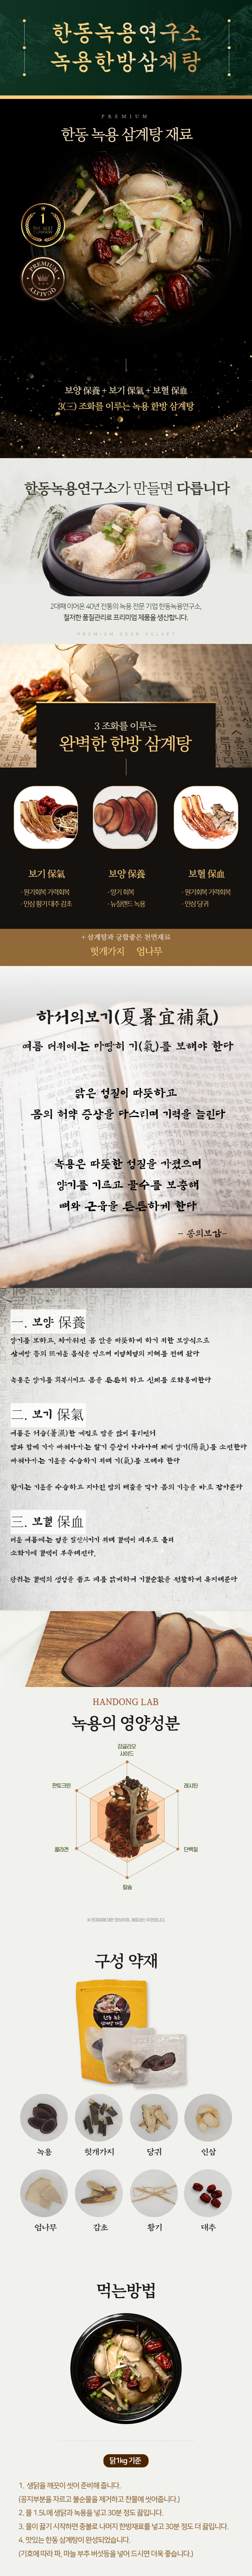 한동녹용연구소
녹용한방삼계탕
PREMIUM
한동 녹용 삼계탕 재료
1
THE BEST
PREMIUM
QUALITY
보양 保養 + 보기 保氣 + 보혈 保血
3(三) 조화를 이루는 녹용 한방 삼계탕
한동녹용연구소가 만들면 다릅니다
2대째 이어온 40년 전통의 녹용 전문 기업 한동녹용연구소,
철저한 품질관리로 프리미엄 제품을 생산합니다.
PREMIUM DEER VELVET
3 조화를 이루는
완벽한 한방 삼계탕
보기 保氣
· 원기회복 기력회복
· 인삼 황기 대추 감초
보양 保養
· 양기 회복
· 뉴질랜드 녹용
보혈 保血
· 원기회복 기력회복
· 인삼 당귀
+ 삼계탕과 궁합좋은 천연재료
헛개가지 엄나무
하서의보기(夏暑宜補氣)
여름 더위에는 마땅히 기(氣)를 보해야 한다
맑은 성질이 따뜻하고
몸의 허약 증상을 다스리며 기력을 늘린다
녹용은 따뜻한 성질을 가졌으며
양기를 기르고 골수를 보충해
뼈와 근육을 튼튼하게 한다
- 동의보감-
一. 보양 保養
양기를 보하고, 차가워진 몸 안을 따뜻하게 하기 위한 보양식으로
삼계탕 등의 뜨거운 음식을 먹으며 이열치열의 지혜를 펼쳐 왔다
녹용은 양기를 회복시키고 몸을 튼튼히 하고 신체를 조화롭게한다
二. 보기 保氣
여름은 서습(暑濕)한 계절로 땀을 많이 흘리면서
땀과 함께 기가 빠져나가는 탈기 증상이 나타나며 체내 양기(陽氣)를 소진한다
빠져나가는 기운을 수습하기 위해 기(氣)를 보해야 한다
황기는 기운을 수습하고 지나친 땀의 배출을 막아 몸의 기능을 바로 잡아준다
三. 보혈 保血
더운 여름에는 열을 발산시키기 위해 혈액이 피부로 몰려
소화기에 혈액이 부족해진다.
당귀는 혈액의 생성을 돕고 피를 맑게하여 기혈순환을 원활하게 유지해준다
HANDONG LAB
녹용의 영양성분
강글리오
사이드
판토크린
레시틴
콜라겐
단백질
칼슘
구성 약재
녹용
헛개가지
당귀
인삼
엄나무
감초
황기
대추
먹는방법
닭1kg 기준
1. 생닭을 깨끗이 씻어 준비해 줍니다.
(꽁지부분을 자르고 불순물을 제거하고 찬물에 씻어줍니다.)
2. 물 1.5L에 생닭과 녹용을 넣고 30분 정도 끓입니다.
3. 물이 끓기 시작하면 중불로 나머지 한방재료를 넣고 30분 정도 더 끓입니다.
4. 맛있는 한동 삼계탕이 완성되었습니다.
(기호에 따라 파, 마늘 부추 버섯등을 넣어 드시면 더욱 좋습니다.)